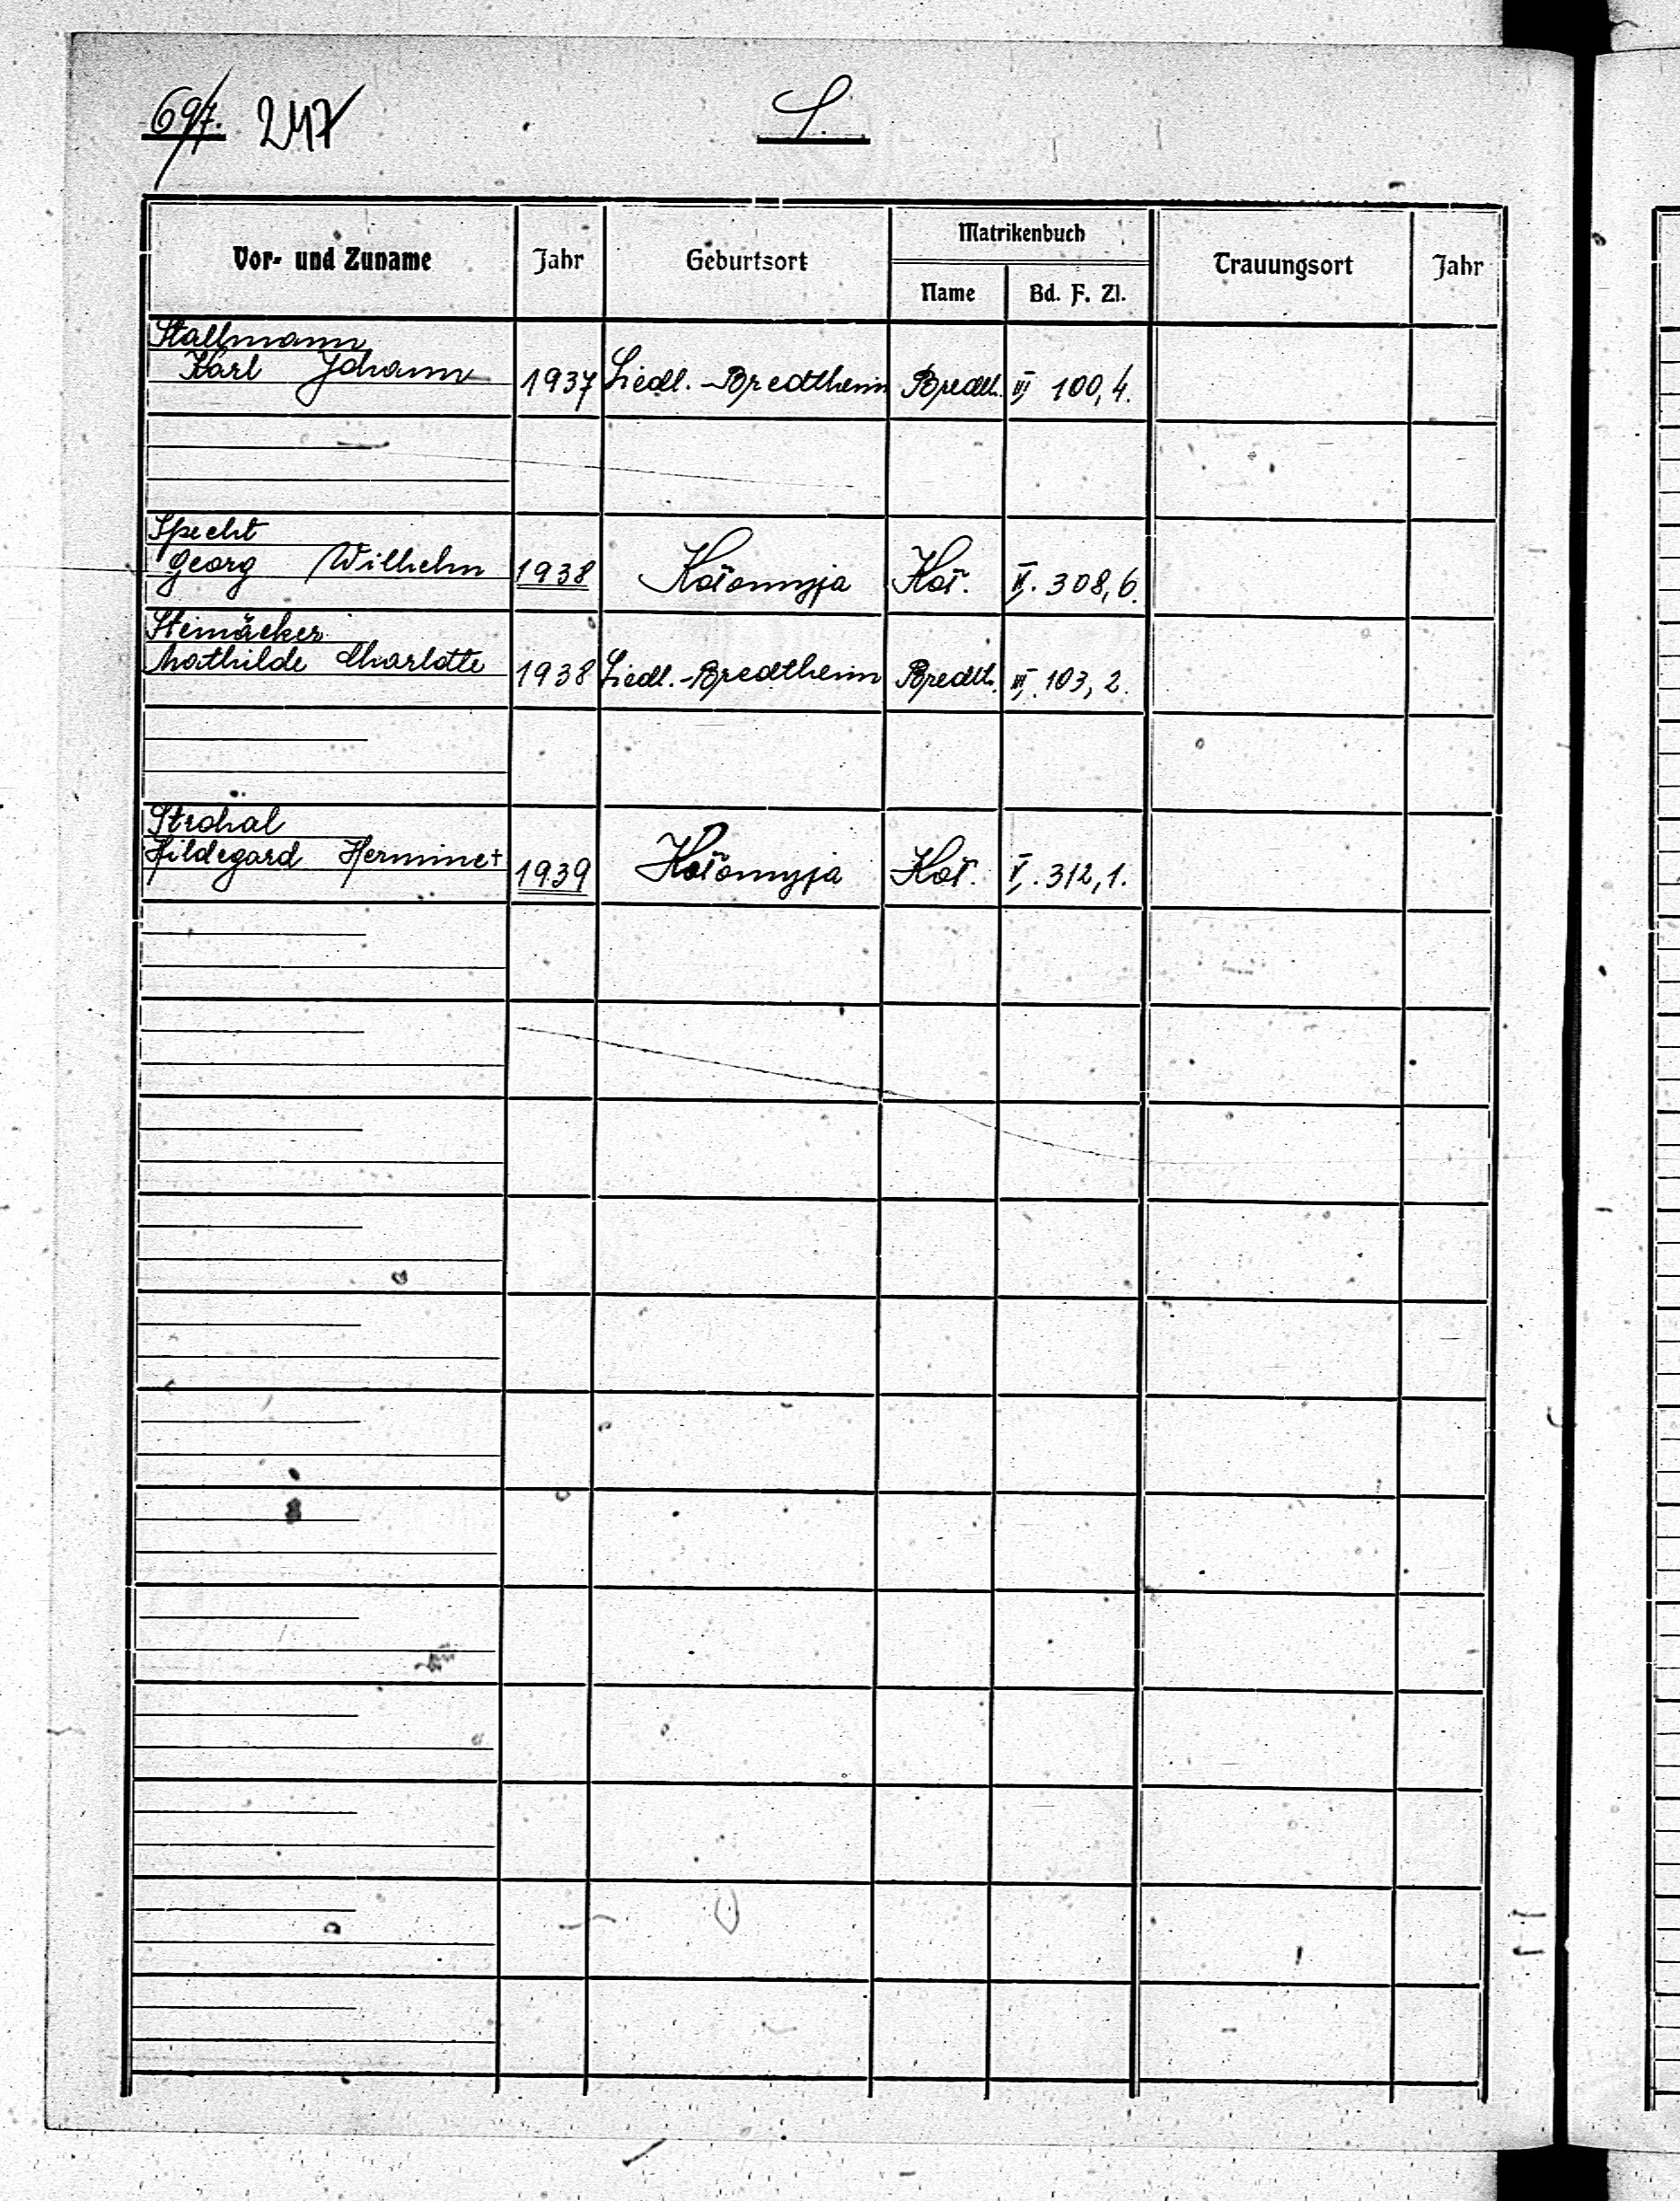 697. 247
S.
Vor- und Zuname Jahr Geburtsort Matrikenbuch Trauungsort Jahr
Name Bd. F. Zl.
Stallmann
Karl Johann 1937 Siedl.-Bredtheim Bredth. III 100,4.
Specht
Georg Wilhelm 1938 Kołomyja Koł. V. 308,6.
Steinäcker
Mathilde Charlotte 1938 Siedl.-Bredtheim Bredth. III. 103,2.
Strohal
Hildegard Hermine+ 1939 Kołomyja Koł. V. 312,1.